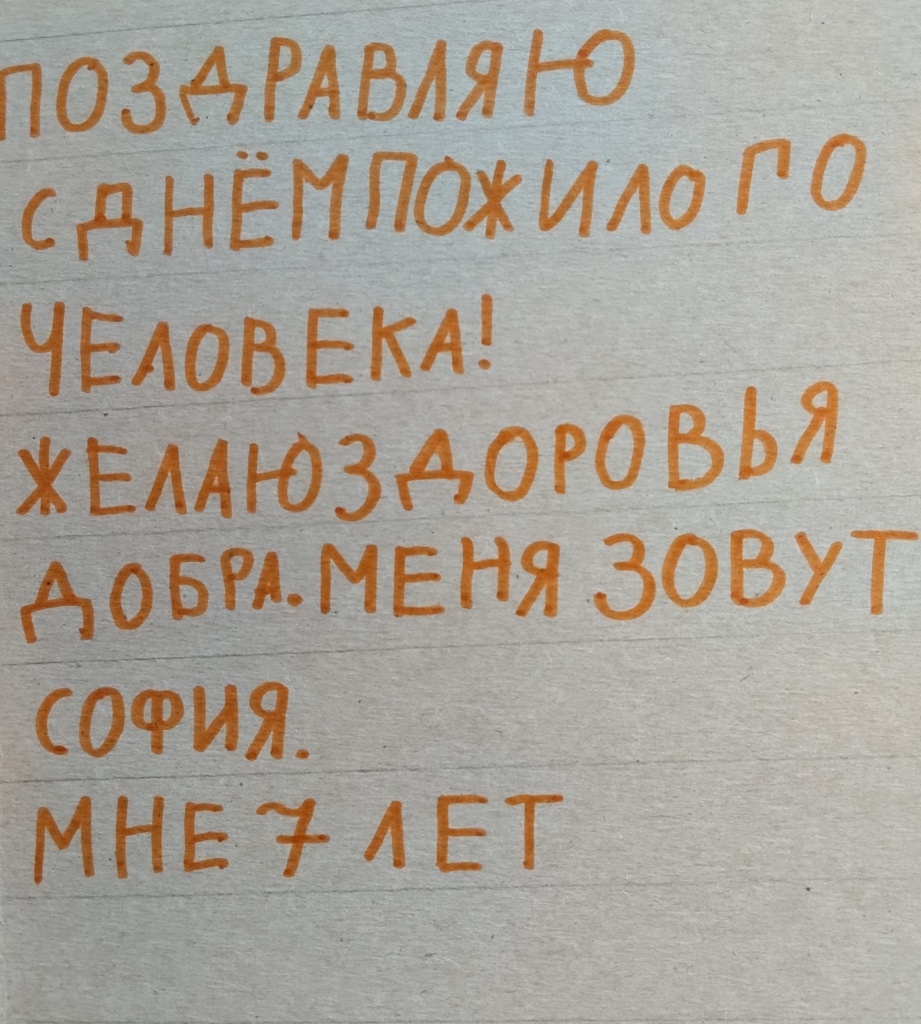 ПОЗДРАВЛЯЮ
С ДНЁМ ПОЖИЛОГО
ЧЕЛОВЕКА!
ЖЕЛАЮ ЗДОРОВЬЯ
ДОБРА. МЕНЯ ЗОВУТ
СОФИЯ.
МНЕ 7 ЛЕТ